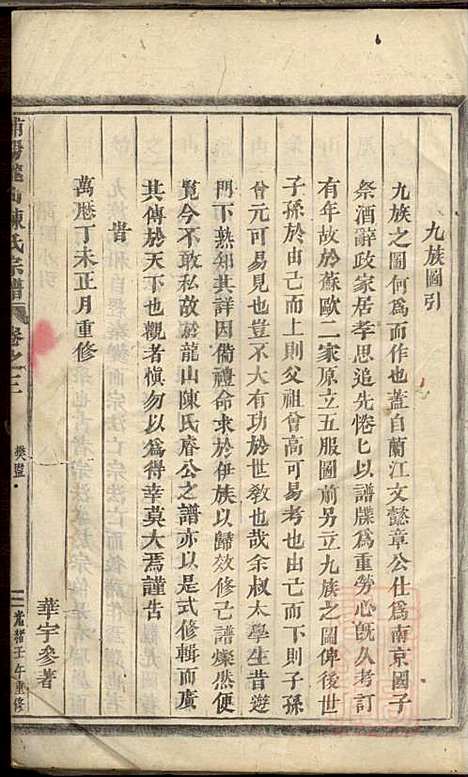 九族圖引
九族之圖何為而作也蓋自蘭江文懿章公仕為南京國子
祭酒辭政家居孝思追先惓匕以譜牒為重勞心旣久考訂
有年故於蘇歐二家原立五服圖前另立九族之圖俾後世
子孫於由己而上則父祖曾高可易考也由己而下則子孫
曾元可易見也豈不大有功於世教也哉余叔太學生昔遊
門下熟知其詳因備禮命求於伊族以歸效修己譜燦然便
覧今不敢私故爲龍山陳氏睿公之譜亦以是式修輯而廣
其傳於天下也觀者愼勿以爲得幸莫大焉謹告
旹
萬厯丁未正月重修
華宇參著
浦陽龍山陳氏宗譜
卷之三
樊盟
二
光緒壬午重修